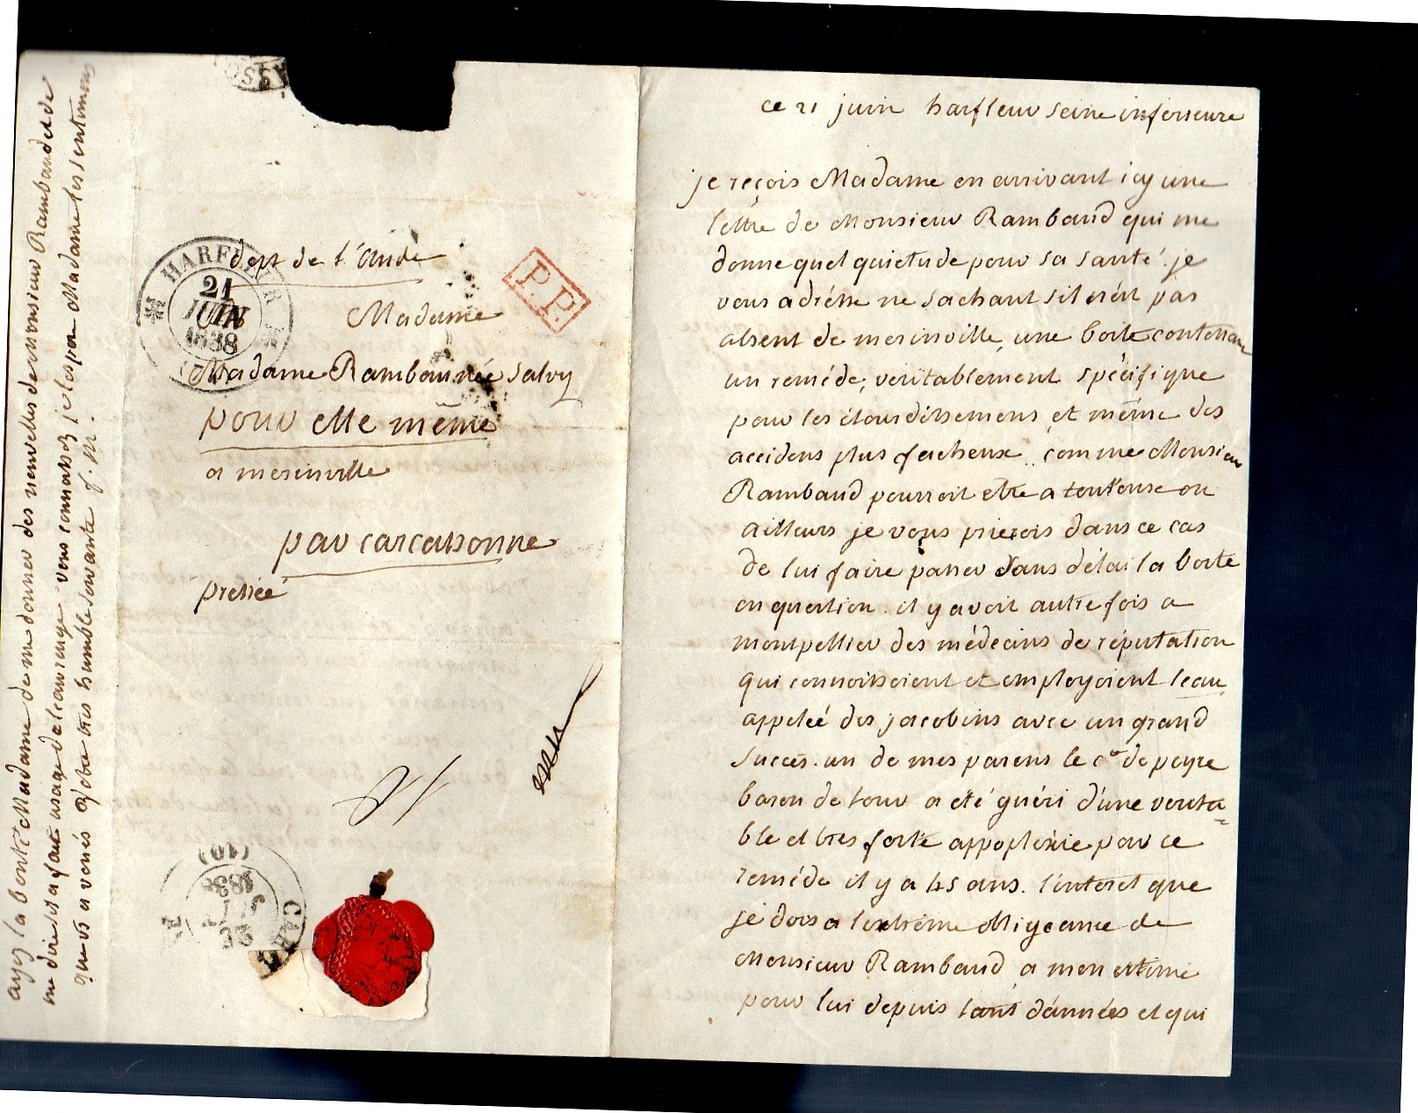 ce 21 juin harfleur seine inferieure
je reçois Madame en arrivant icy une
lettre de Monsieur Rambaud qui me
donne quelquietude pour sa santé. je
vous adrésse ne sachant s'il n'ért pas
absent de merinville, une boite contenant
un reméde, veritablement spécifique
pour les étourdissemens et même des
accidens plus facheux. comme Monsieur
Rambaud pourroit etre a toulouse ou
ailleurs je vous prierois dans ce cas
de lui faire passer sans délai la boite
en question. il y avoit autre fois a
montpellier des médecins de réputation
qui connoissoient et employoient l'eau
appelée des jacobins avec un grand
succès. un de mes parens le cte de peyre
baron de tour a été guéri d'une verita=
ble et tres forte appoplexie par ce
reméde il y a 45 ans. l'interet que
je dois a l'extrême obligeance de
Monsieur Rambaud, a mon estime
pour lui depuis tant d'années et qui
dept de l'Aude
Madame
Madame Rambaud née Salvy
pour elle même
a merinville
par carcassonne
pressée
HARFLEUR
21
JUIN
1838
P.P.
CARC
22
JUIN
1838
(10)
ayez la bonté Madame de me donner des nouvelles de monsieur Rambaud et de
me dire s'il a fait usage de l'eau rouge. vous connaissez je l'espere Madame les sentimens
que j'ai voués d'etre tres humble servante f. m.